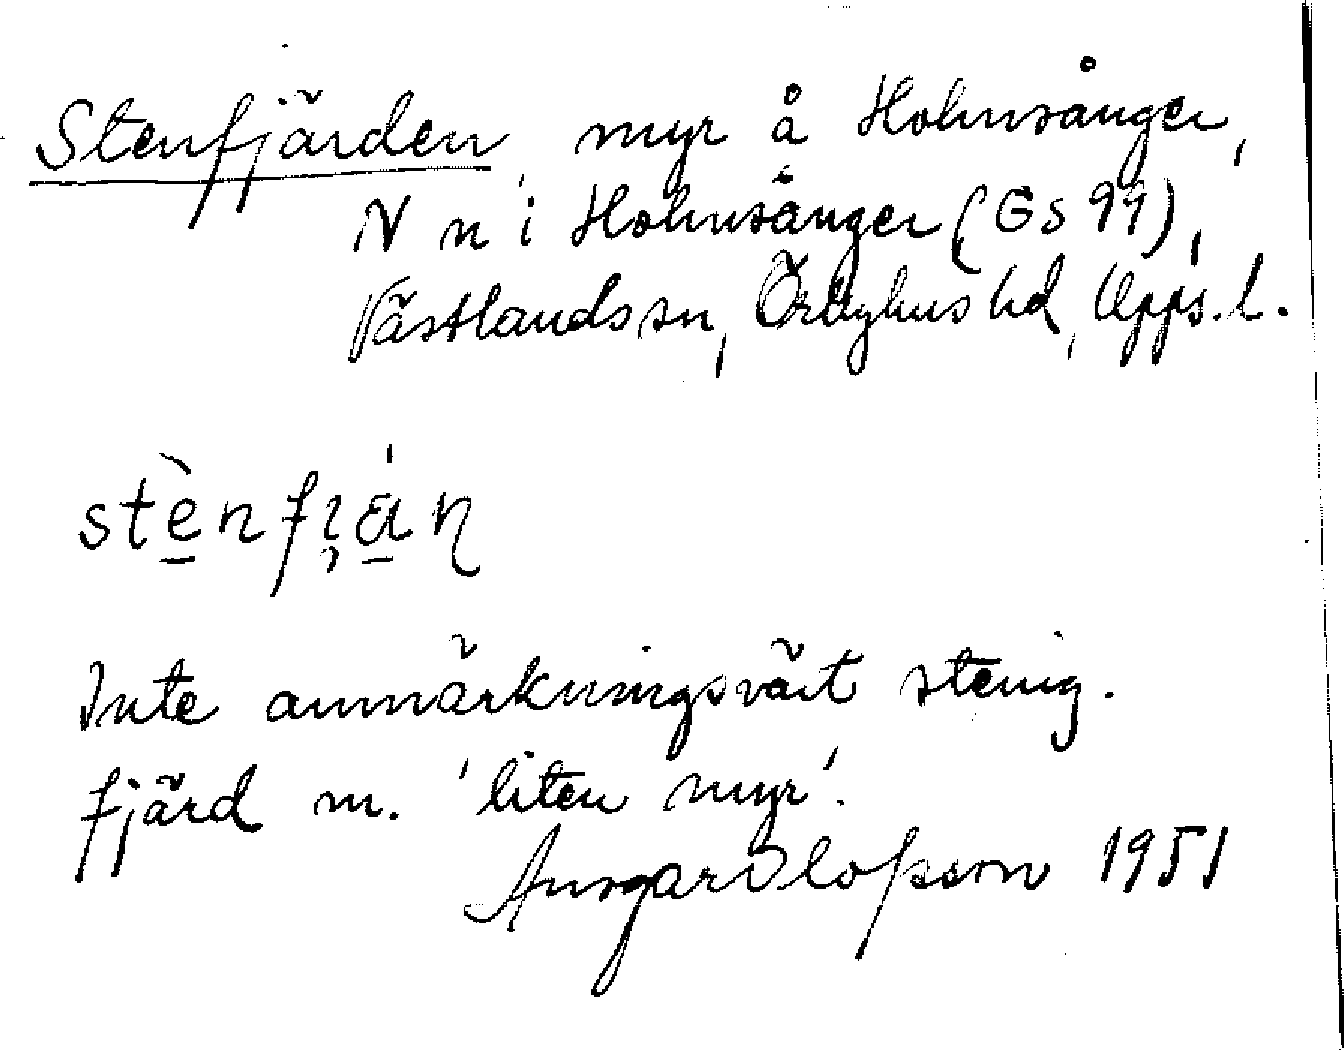 Stenfjärden, myr å Holmsånger,
N n i Holmsånger (Gs 99),
Västlands sn, Örbyhus hd, Upps. l.
stènfi̯án
Inte anmärkningsvärt stenig.
fjärd m. 'liten myr'.
Ansgar Olofsson 1951